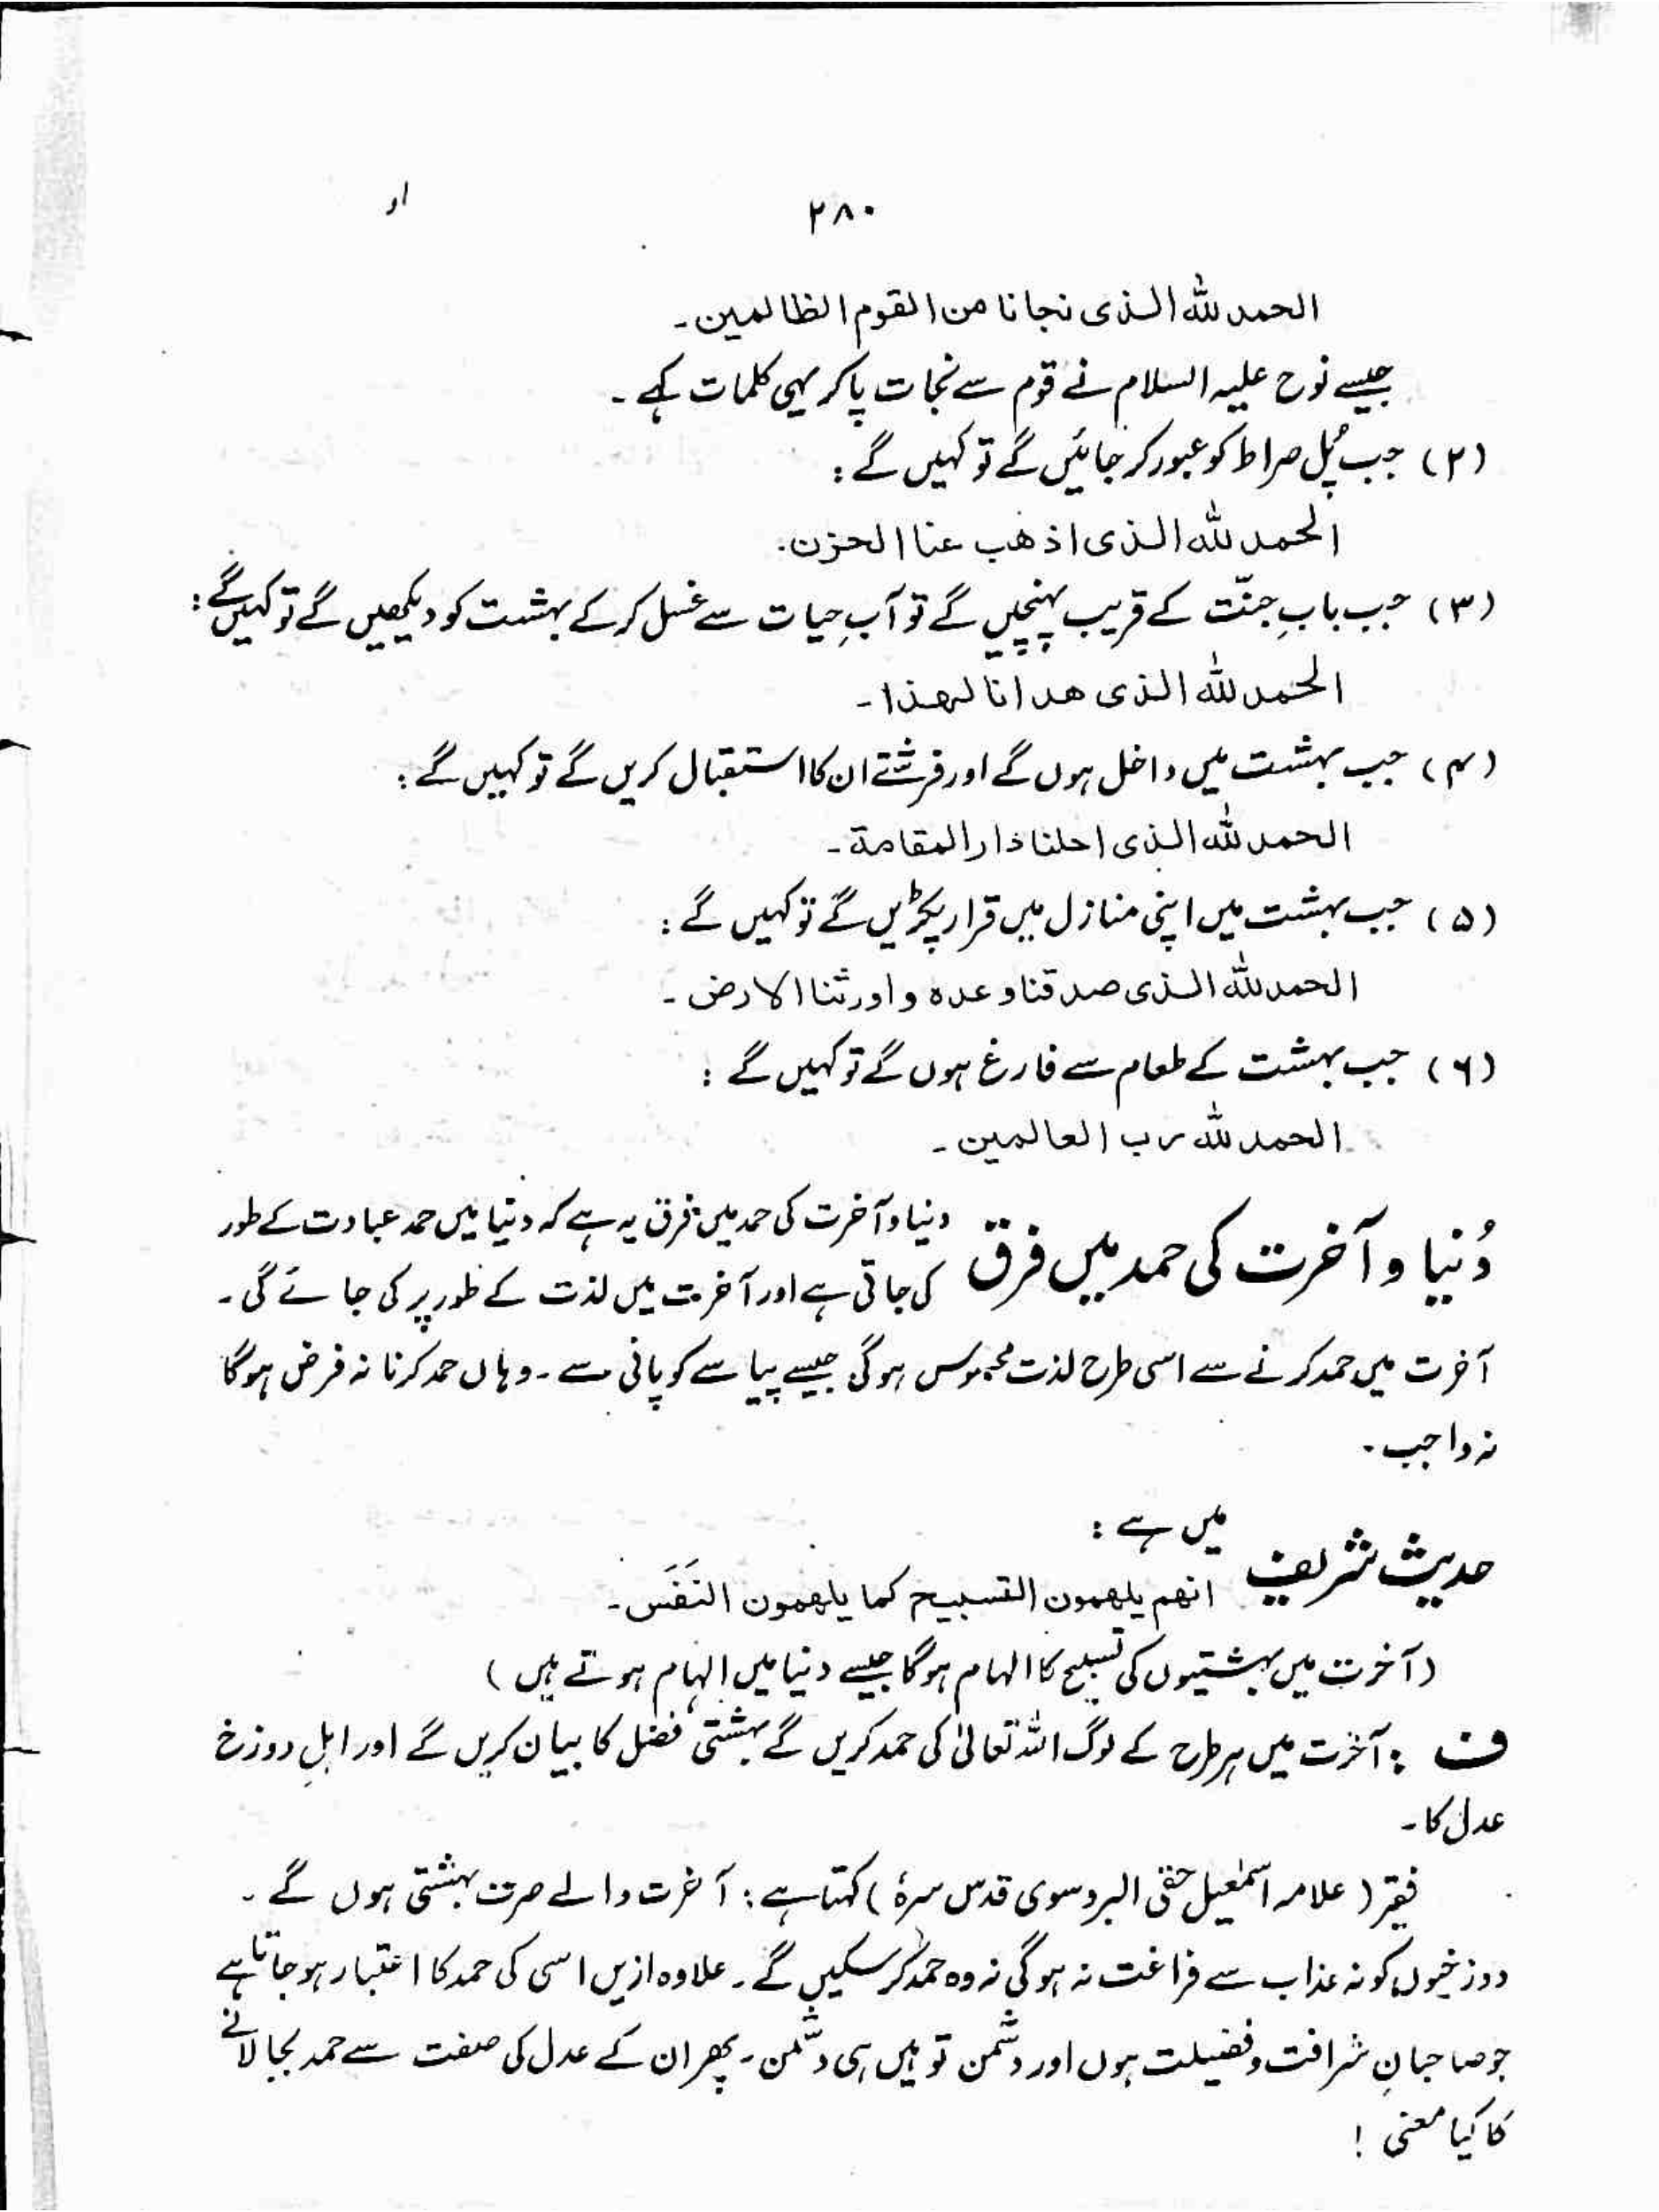 ۲۸۰
او
الحمد للہ الذی نجانا من القوم الظالمین۔
جیسے نوح علیہ السلام نے قوم سے نجات پا کر یہی کلمات کہے۔
(۲) جب پُل صراط کو عبور کر جائیں گے تو کہیں گے :
الحمد للہ الذی اذھب عنا الحزن۔
(۳) جب بابِ جنّت کے قریب پہنچیں گے تو آبِ حیات سے غسل کر کے بہشت کو دیکھیں گے تو کہیں گے :
الحمد للہ الذی ھدانا لھذا۔
(۴) جب بہشت میں داخل ہوں گے اور فرشتے ان کا استقبال کریں گے تو کہیں گے :
الحمد للہ الذی احلنا دار المقامۃ۔
(۵) جب بہشت میں اپنی منازل میں قرار پکڑیں گے تو کہیں گے :
الحمد للہ الذی صدقنا وعدہ و اورثنا الارض۔
(۶) جب بہشت کے طعام سے فارغ ہوں گے تو کہیں گے :
الحمد للہ رب العالمین۔
دُنیا و آخرت کی حمد میں فرق دنیا و آخرت کی حمد میں فرق یہ ہے کہ دنیا میں حمد عبادت کے طور
کی جاتی ہے اور آخرت میں لذت کے طور پر کی جائے گی۔
آخرت میں حمد کرنے سے اسی طرح لذت محسوس ہوگی جیسے پیاسے کو پانی سے۔ وہاں حمد کرنا نہ فرض ہوگا
نہ واجب۔
حدیث شریف میں ہے :
انھم یلھمون التسبیح کما یلھمون النَفَس۔
(آخرت میں بہشتیوں کی تسبیح کا الہام ہوگا جیسے دنیا میں الہام ہوتے ہیں)
ف : آخرت میں ہر طرح کے لوگ اللہ تعالیٰ کی حمد کریں گے بہشتی فضل کا بیان کریں گے اور اہلِ دوزخ
عدل کا۔
فقیر (علامہ اسمٰعیل حقی البروسوی قدس سرہٗ) کہتا ہے : آخرت والے صرف بہشتی ہوں گے۔
دوزخیوں کو نہ عذاب سے فراغت نہ ہوگی نہ وہ حمد کر سکیں گے۔ علاوہ ازیں اسی کی حمد کا اعتبار ہو جاتا ہے
جو صاحبانِ شرافت و فضیلت ہوں اور دشمن تو ہیں ہی دشمن۔ پھر ان کے عدل کی صفت سے حمد بجا لانے
کا کیا معنی !